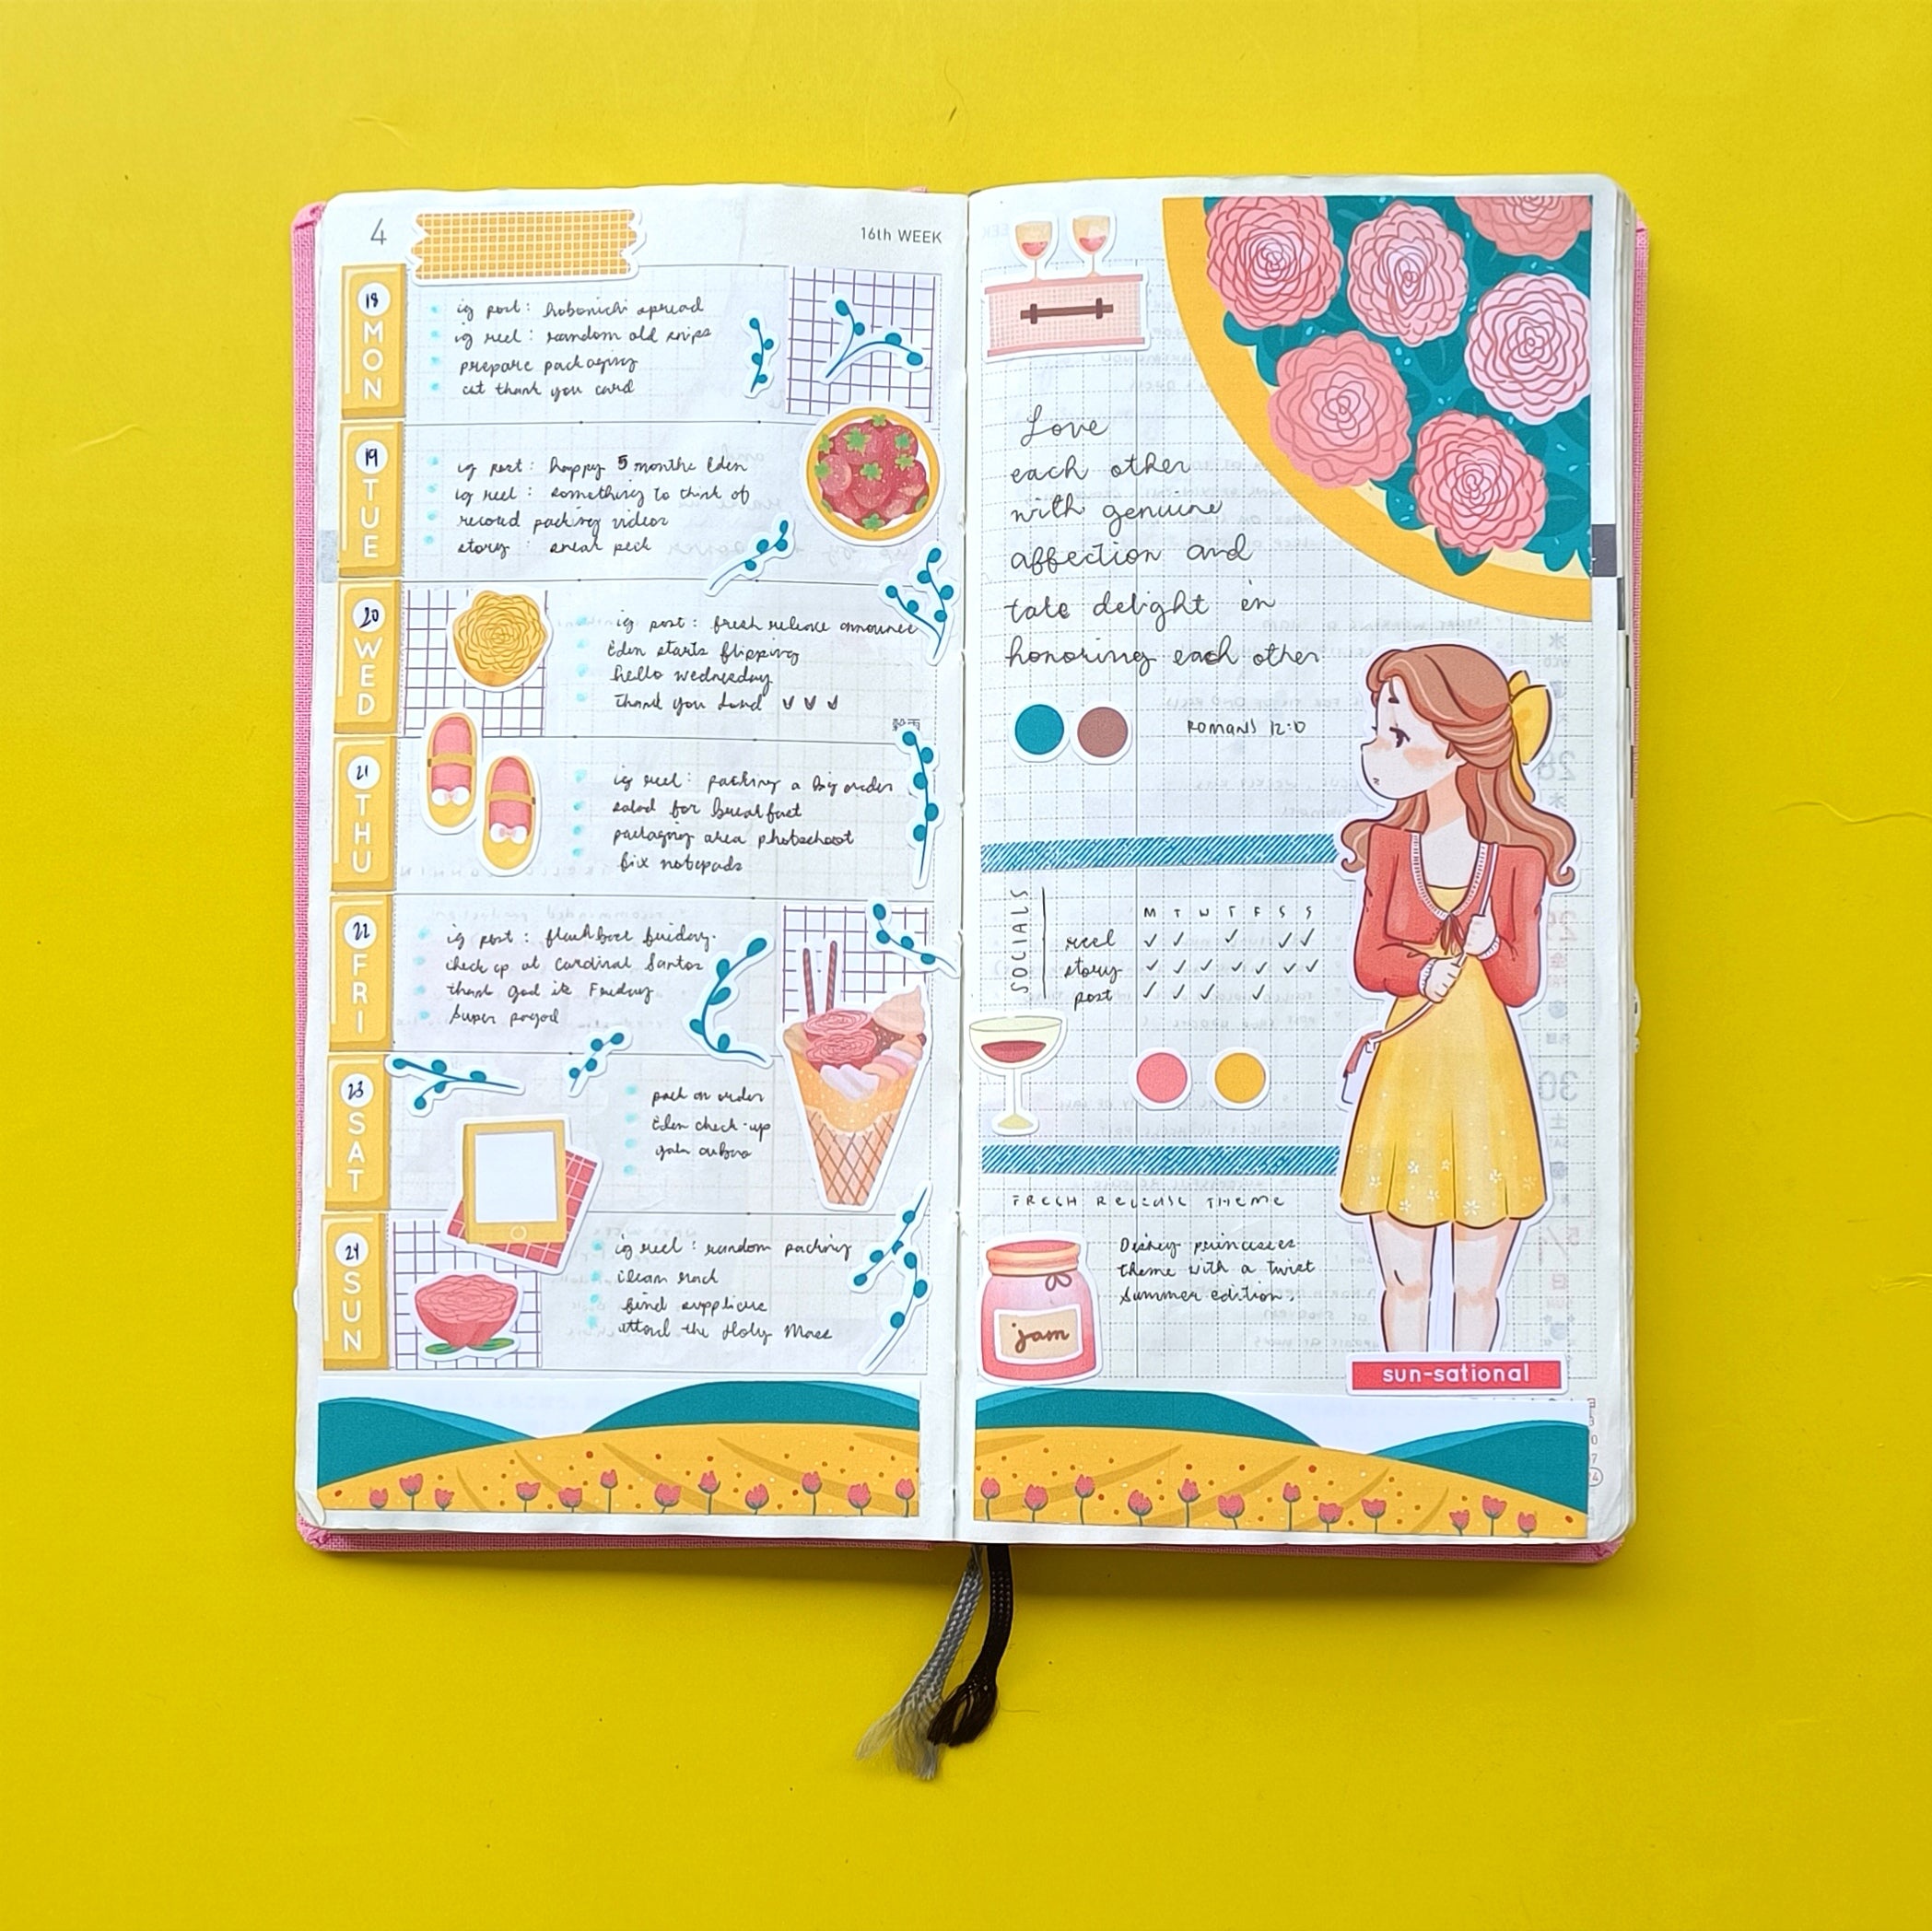 4
16th WEEK
18
MON
ig post: hobonichi spread
ig reel: random old snips
prepare packaging
cut thank you card
19
TUE
ig post: happy 5 months Eden
ig reel: something to think of
record packing videos
story: sneak peek
20
WED
ig post: fresh release announce
Eden starts flipping
hello wednesday
thank you Lord
穀雨
21
THU
ig reel: packing a big order
salad for breakfast
packaging area photoshoot
fix notepads
22
FRI
ig post: flashback friday.
check up at Cardinal Santos
thank God it's Friday
super pagod
23
SAT
pack an order
Eden check-up
24
SUN
ig reel: random packing
clean rack
find supplies
attend the Holy Mass
Love
each other
with genuine
affection and
take delight in
honoring each other
ROMANS 12:10
SOCIALS
M T W T F S S
reel ✓ ✓ ✓ ✓ ✓
story ✓ ✓ ✓ ✓ ✓ ✓ ✓
post ✓ ✓ ✓ ✓
FRESH RELEASE THEME
Disney princesses
theme with a twist
summer edition.
jam
sun-sational